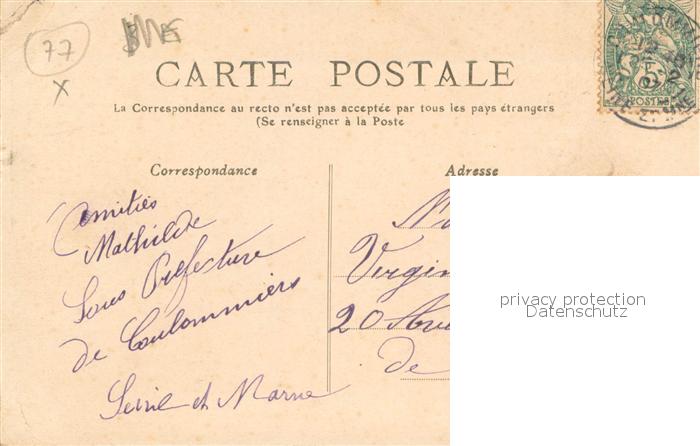 77
x
CARTE POSTALE
La Correspondance au recto n'est pas acceptée par tous les pays étrangers
(Se renseigner à la Poste
Correspondance
Amitiés
Mathilde
Sous Préfecture
de Coulommiers
Seine et Marne
Adresse
Virgin
20
de
POSTES
privacy protection
Datenschutz